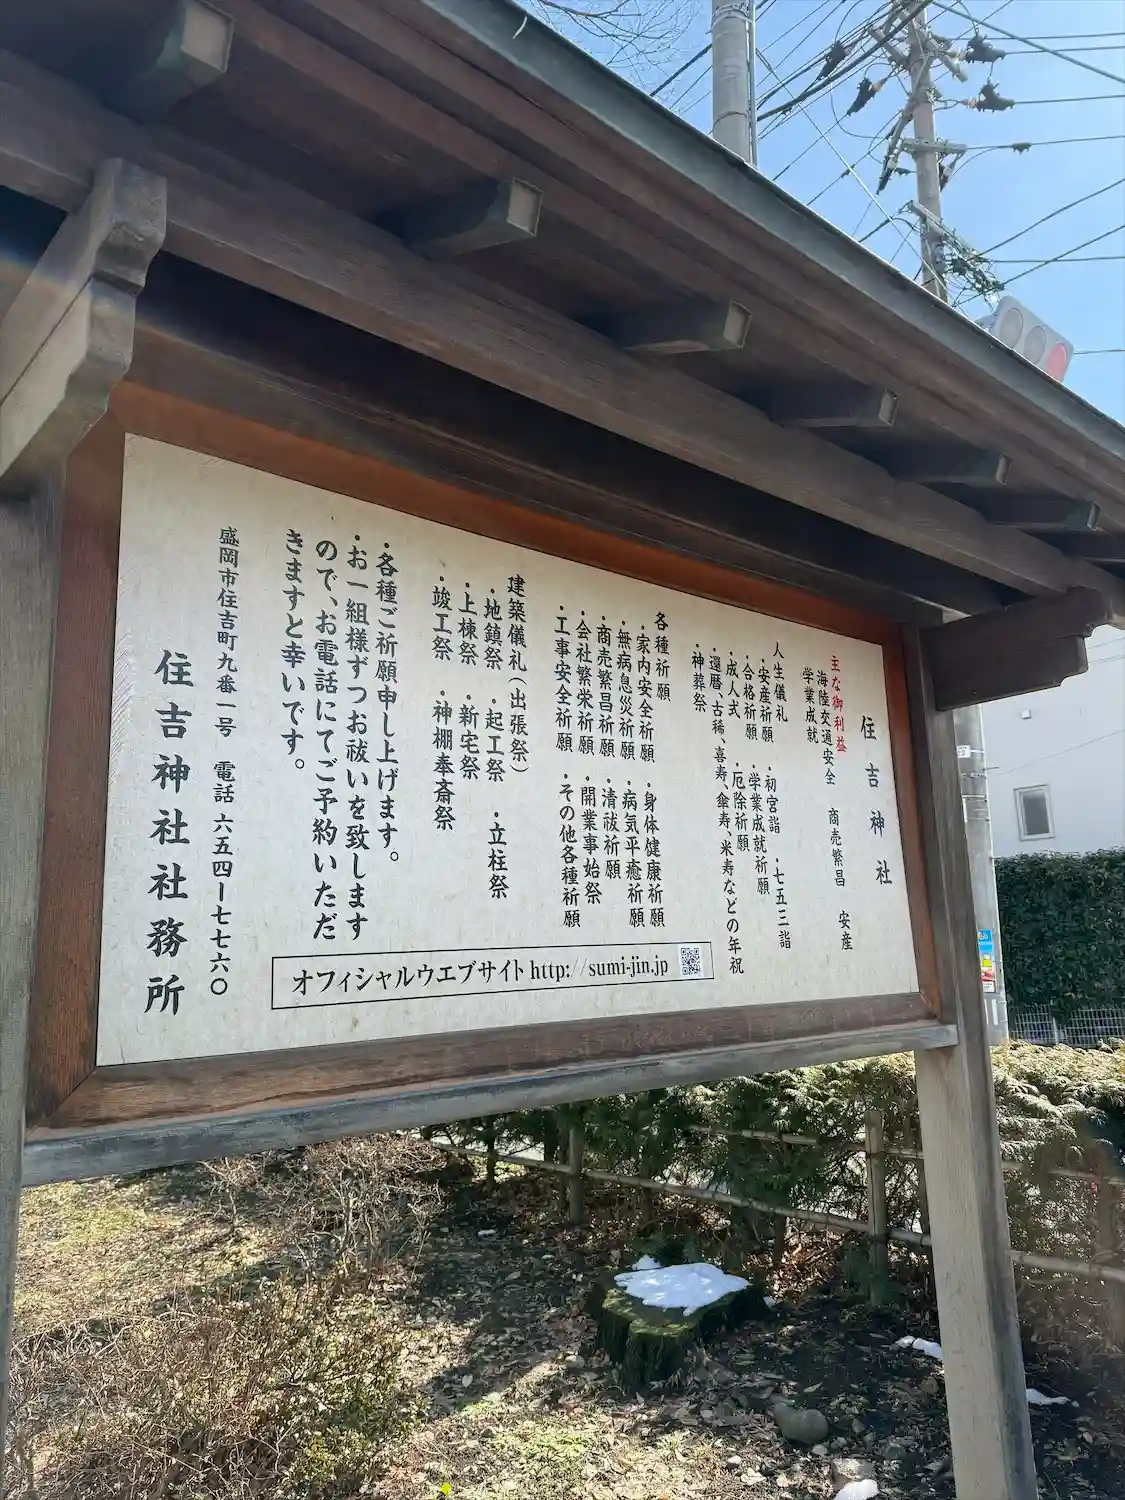 住吉神社
主な御利益
海陸交通安全 商売繁昌 安産
学業成就
人生儀礼
・安産祈願 ・初宮詣 ・七五三詣
・合格祈願 ・学業成就祈願
・成人式 ・厄除祈願
・還暦、古稀、喜寿、傘寿、米寿などの年祝
・神葬祭
各種祈願
・家内安全祈願 ・身体健康祈願
・無病息災祈願 ・病気平癒祈願
・商売繁昌祈願 ・清祓祈願
・会社繁栄祈願 ・開業事始祭
・工事安全祈願 ・その他各種祈願
建築儀礼(出張祭)
・地鎮祭 ・起工祭 ・立柱祭
・上棟祭 ・新宅祭
・竣工祭 ・神棚奉斎祭
・各種ご祈願申し上げます。
・お一組様ずつお祓いを致します
ので、お電話にてご予約いただ
きますと幸いです。
盛岡市住吉町九番一号 電話 六五四ー七七六〇
住吉神社社務所
オフィシャルウエブサイト http://sumi-jin.jp